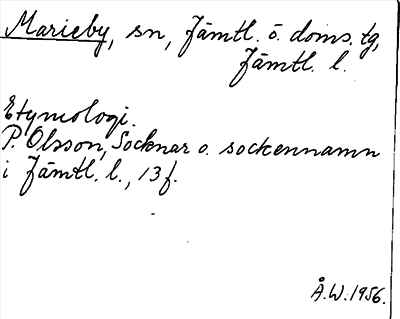 Marieby, sn, Jämtl. ö. doms. tg,
Jämtl. l.
Etymologi.
P. Olsson, Socknar o. sockennamn
i Jämtl. l., 13 f.
Å.W. 1956.